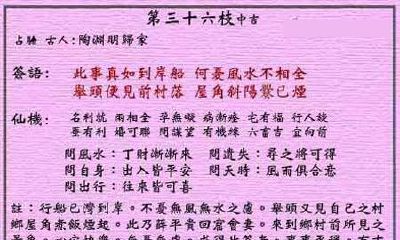 第三十六枝中吉
占驗 古人:陶淵明歸家
簽語: 此事真如到岸船 何憂風水不相全
舉頭便見前村落 屋角斜陽爨已煙
仙機: 名利就 兩相全 孕無礙 病漸痊 宅有福 行人旋
蠶有利 婚可聯 問謀望 有機緣 六畜吉 宜向前
問風水:丁財漸漸來 問遺失:尋之將可得
問自身:出入皆平安 問天時:風雨俱合意
問出行:往來皆可喜
註:行船已灣到岸。不憂無風無水之慮。舉頭又見自己之村
鄉屋角煮飯煙起。此乃薛平貴回窰會妻。來到鄉村前所見之